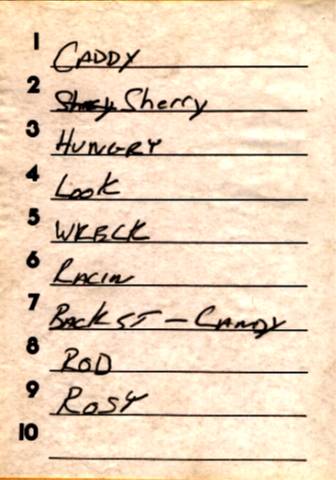 1 CADDY
2 Sherry
3 HUNGRY
4 LOOK
5 WRECK
6 RACIN
7 BACK ST - CANDY
8 ROD
9 ROSY
10